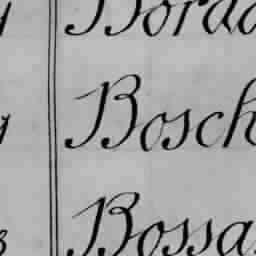 Borda
Bosch
Bossa